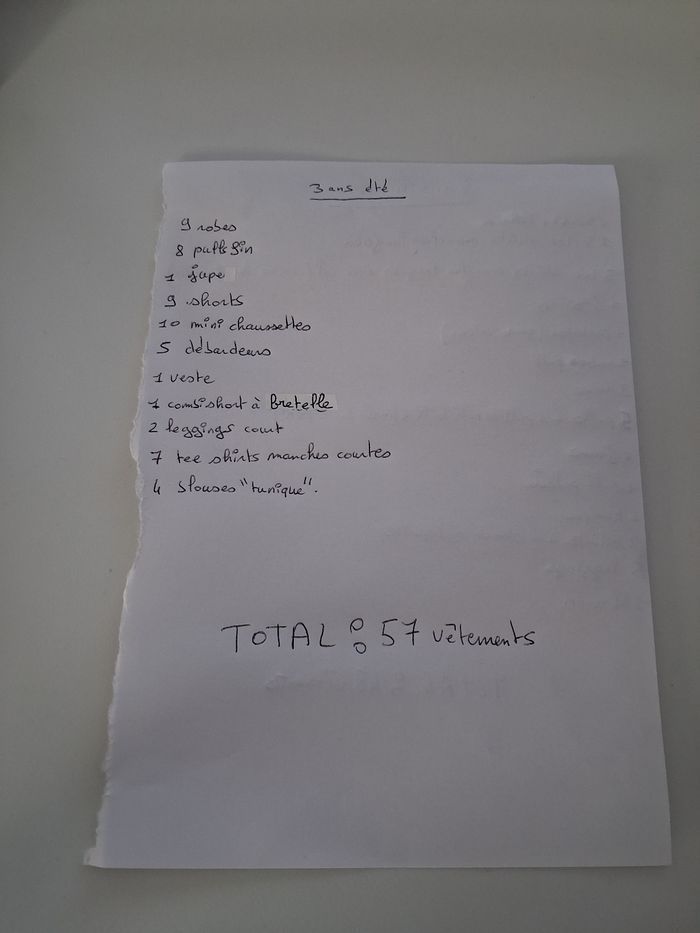 3 ans été
9 robes
8 pulls fin
1 jupe
9 shorts
10 mini chaussettes
5 débardeurs
1 veste
1 combishort à Bretelle
2 leggings court
7 tee shirts manches courtes
4 blouses "tunique".
TOTAL : 57 vêtements